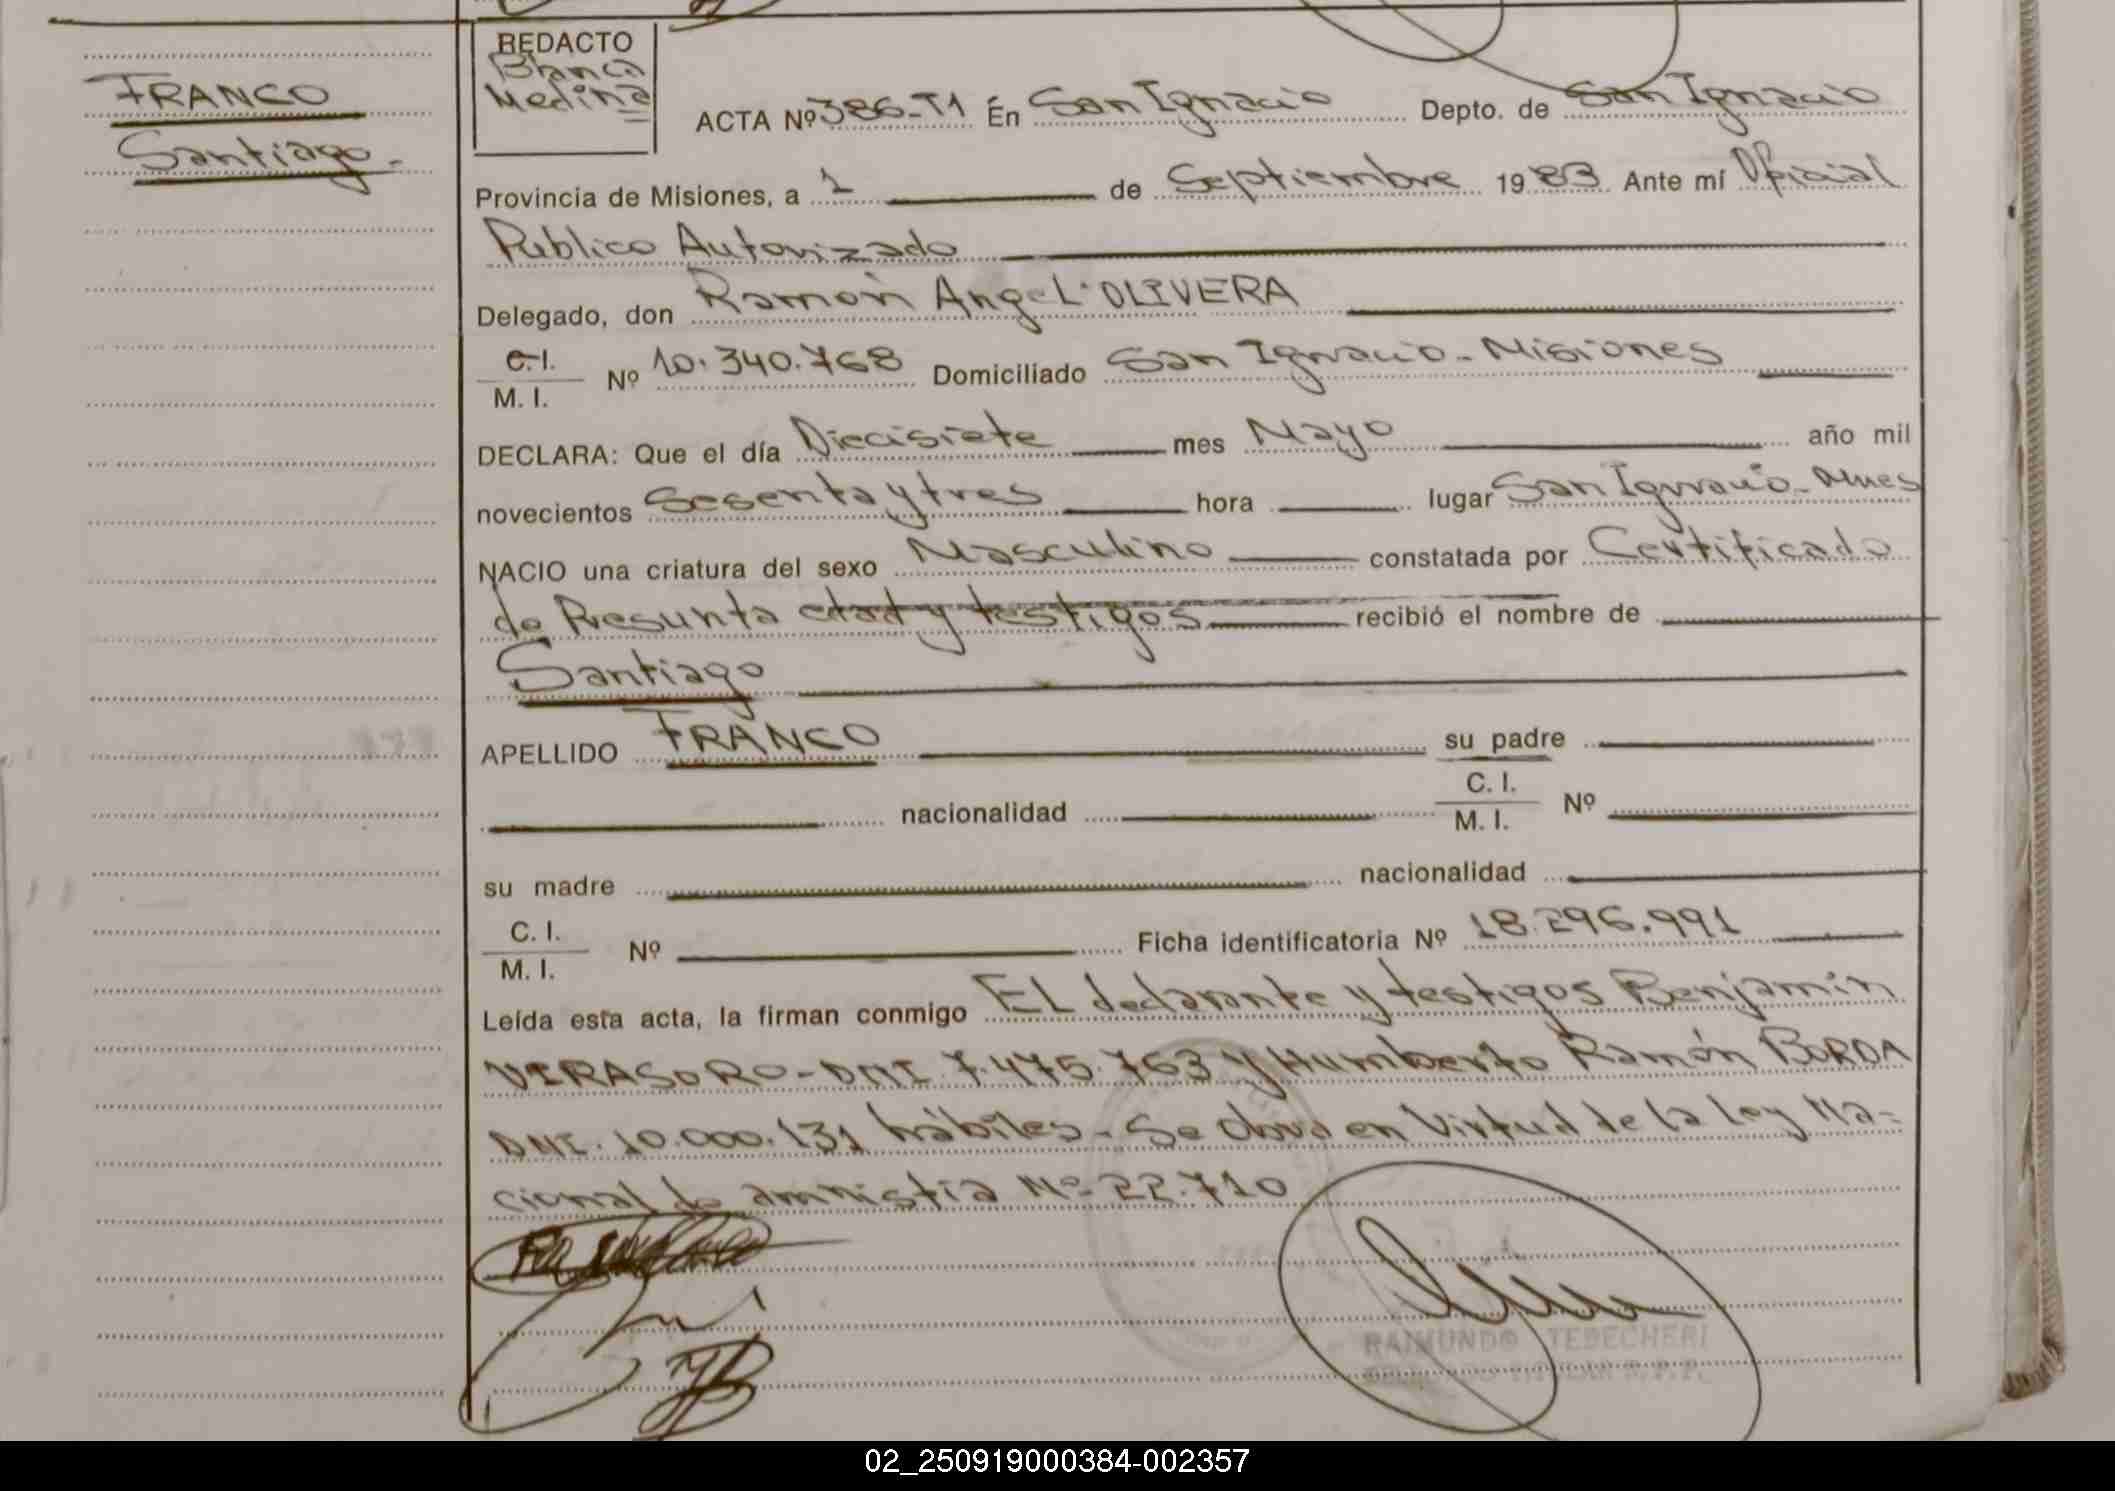 FRANCO
Santiago.
REDACTO
Blanca
Medina
ACTA Nº 386-T1 En San Ignacio Depto. de San Ignacio
Provincia de Misiones, a 1 de Septiembre 1983 Ante mí Oficial
Publico Autorizado
Delegado, don Ramón Angel OLIVERA
C.I.
M. I. Nº 10.340.768 Domiciliado San Ignacio - Misiones
DECLARA: Que el día Diecisiete mes Mayo año mil
novecientos Sesenta y tres hora lugar San Ignacio - Mnes
NACIO una criatura del sexo Masculino constatada por Certificado
de Presunta edad y testigos recibió el nombre de
Santiago
APELLIDO FRANCO su padre
nacionalidad C. I.
M. I. Nº
su madre nacionalidad
C. I.
M. I. Nº Ficha identificatoria Nº 18.296.991
Leída esta acta, la firman conmigo EL declarante y testigos Benjamín
VIRASORO - DNI 7.475.763 y Humberto Ramón BORDA
DNI. 10.000.131 hábiles - Se obvió en Virtud de la Ley Na-
cional de amnistía Nº 22.710
RAIMUNDO TEDECHERI
02_250919000384-002357